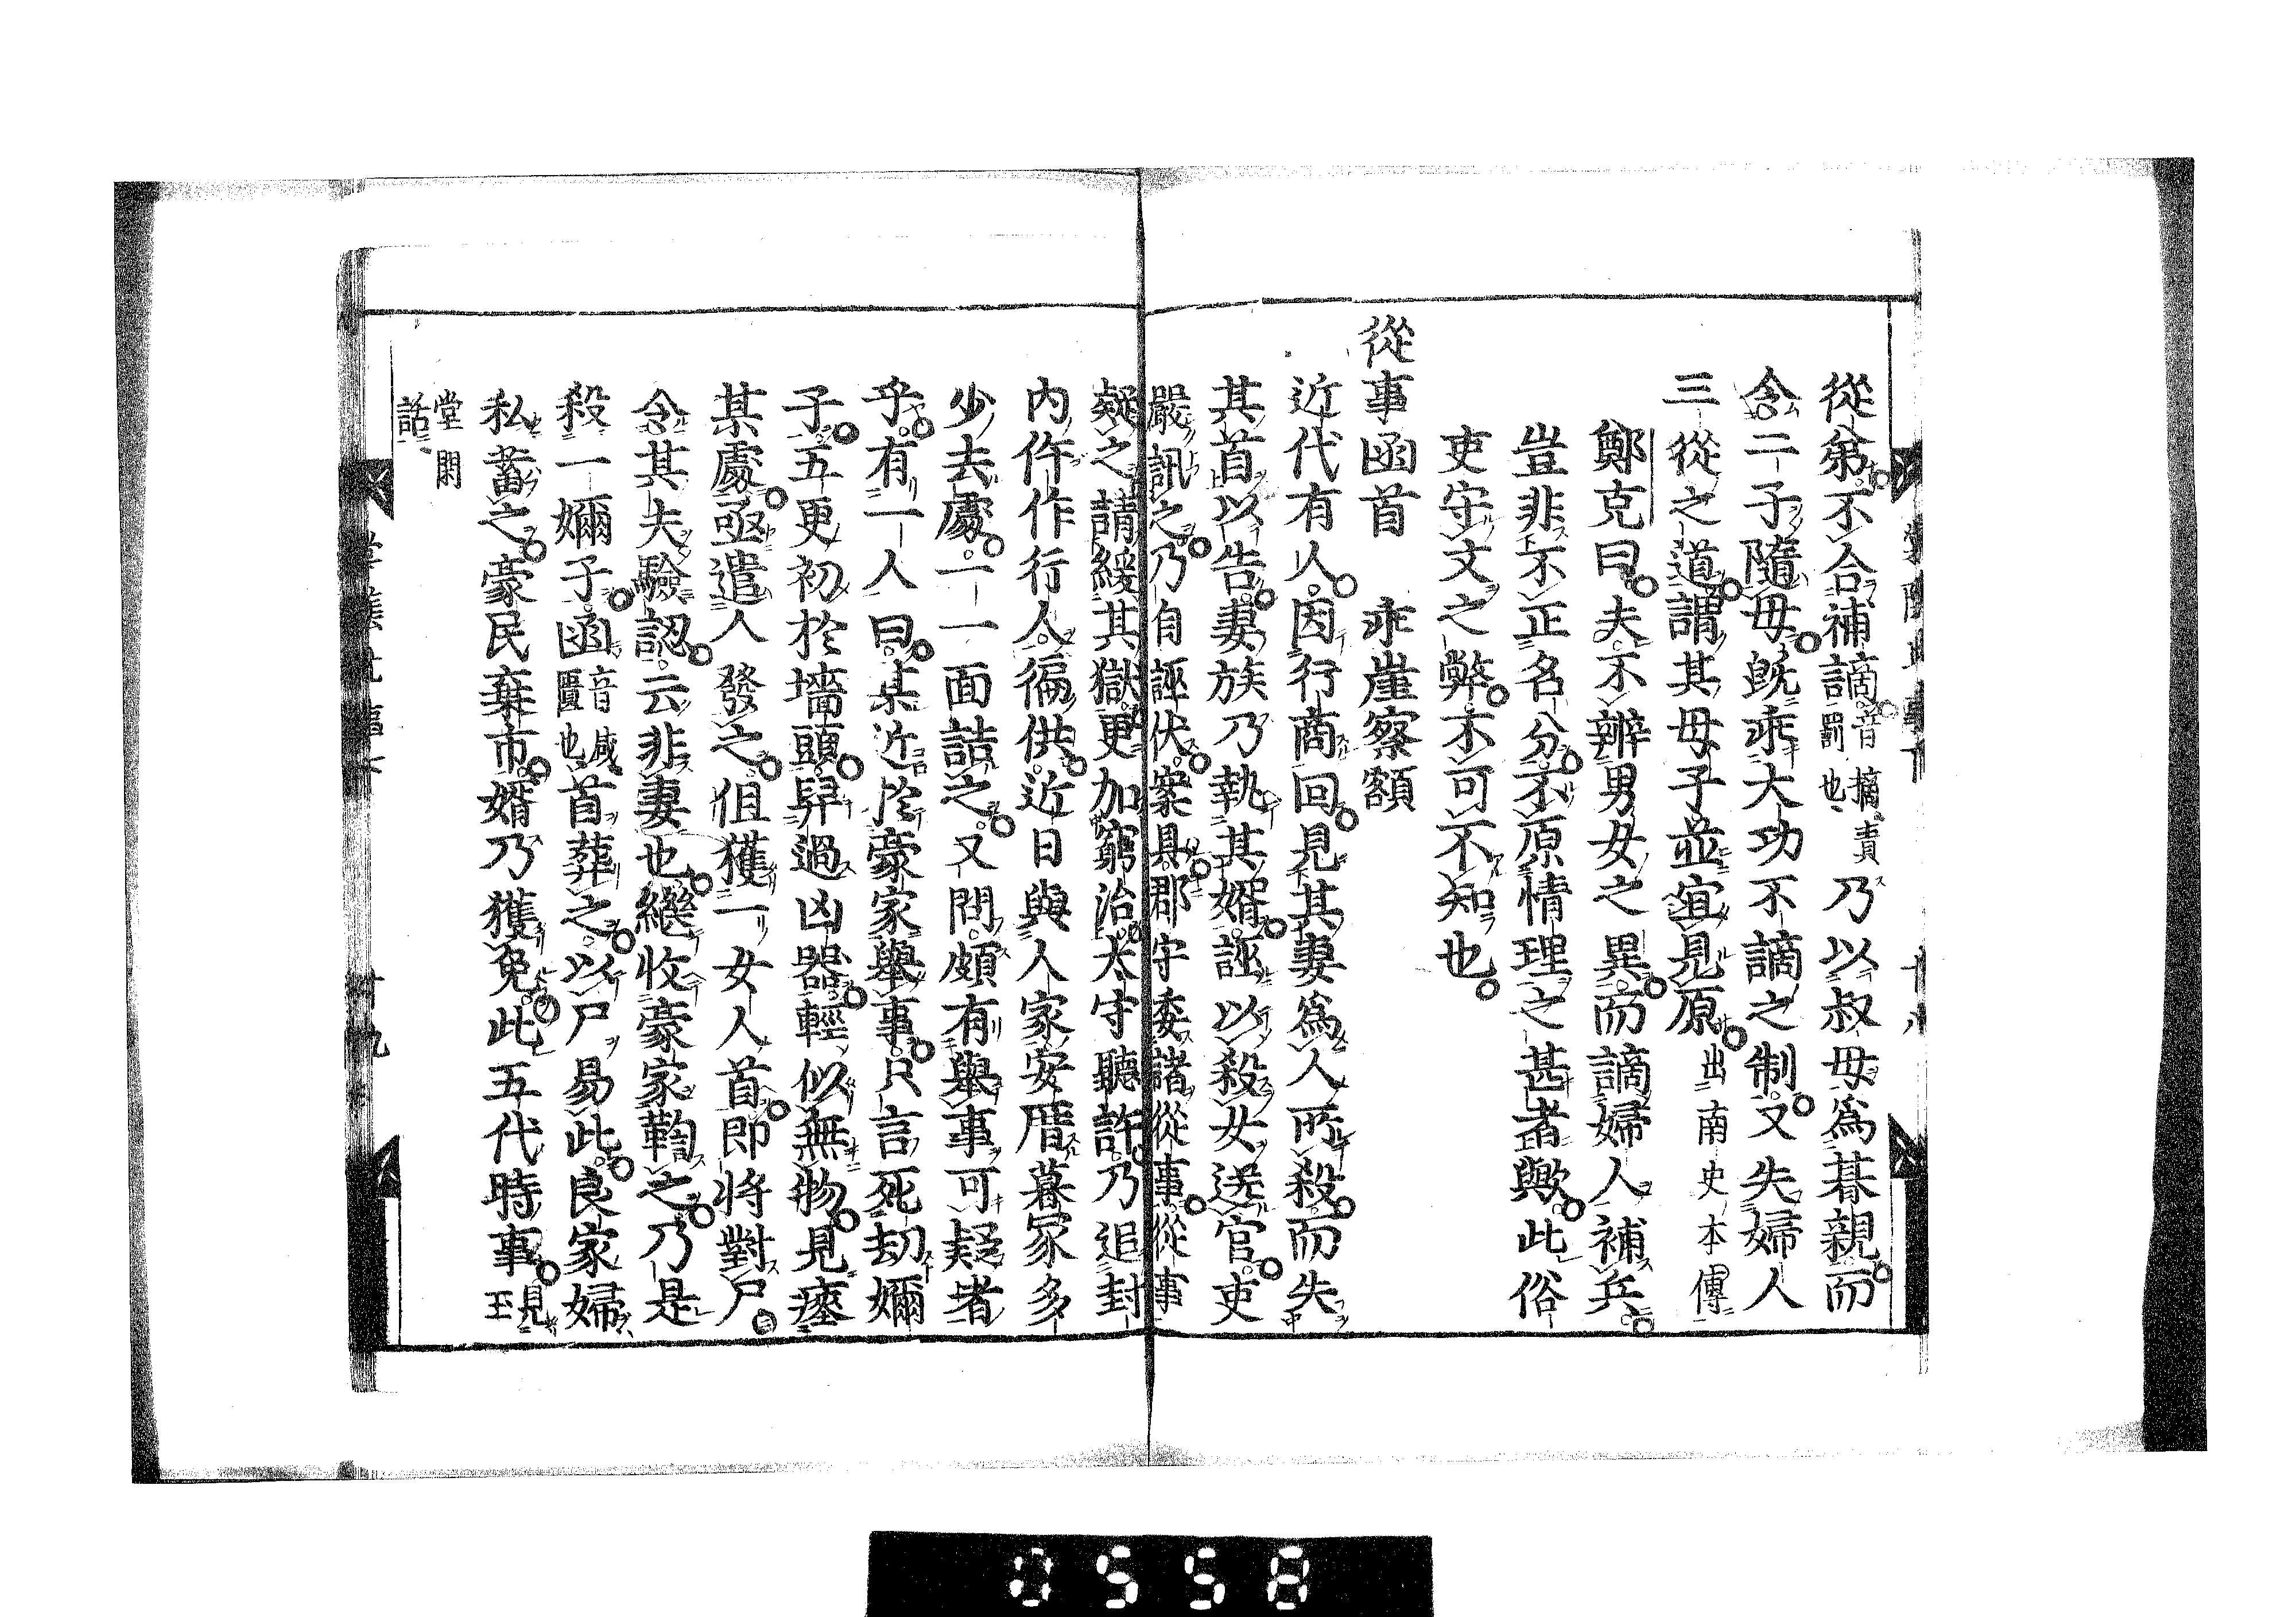 從弟不合補謫音摘責罰也乃以叔母爲朞親而
令二子隨母既乖大功不謫之制又失婦人
三從之道謂其母子並宜見原出南史本傳
鄭克曰夫不辨男女之異而謫婦人補兵
豈非不正名分不原情理之甚者歟此俗
吏守文之弊不可不知也
從事函首　乖崖察額
近代有人因行商回見其妻爲人所殺而失
其首以告妻族乃執其婿誣以殺女送官吏
嚴訊之乃自誣伏案具郡守委諸從事從事
疑之請緩其獄更加窮治太守聽許乃追封
內仵作行人徧供近日與人家安厝墓冢多
少去處一一面詰之又問頗有舉事可疑者
乎有一人曰某近於豪家舉事只言死却嬭
子五更初於墻頭舁過凶器輕似無物見瘞
某處亟遣人發之但獲一女人首即將對尸
令其夫驗認云非妻也繼收豪家鞫之乃是
殺一嬭子函音咸匱也首葬之以尸易此良家婦
私畜之豪民棄市婿乃獲免此五代時事見玉
堂閑話
0558